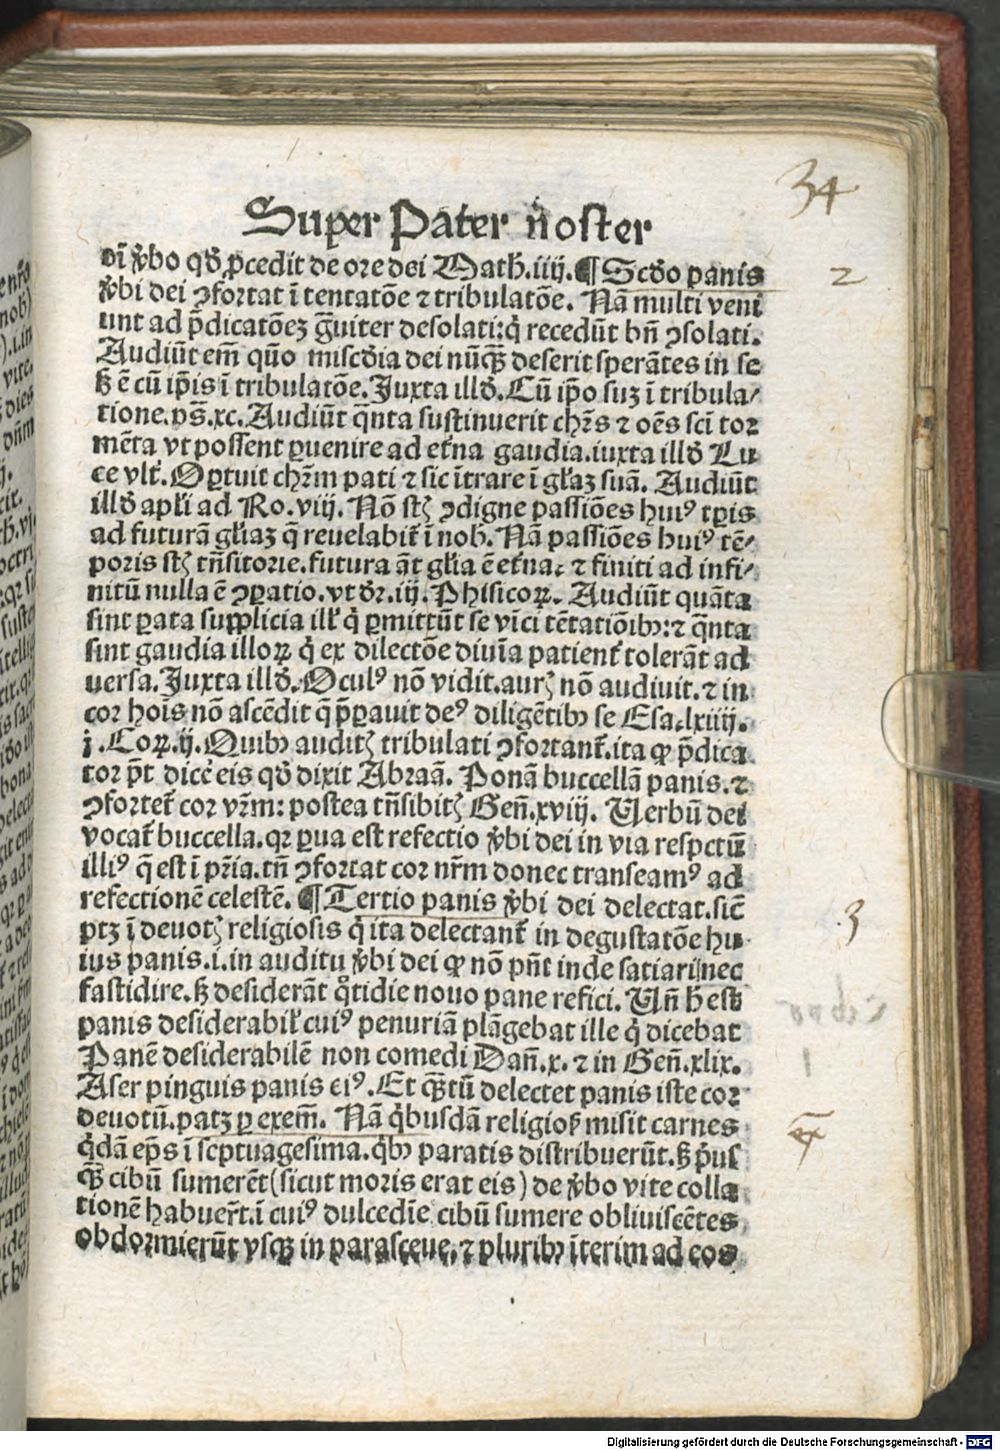 34
Super Pater n̄oster
oī ꝟbo qd̕ ꝓcedit de ore dei Math̕.iiij.¶Scd̕o panis
2
ꝟbi dei ꝯfortat ī tentatōe ⁊ tribulatōe. Nā multi veni
unt ad p̄dicatōeꝫ g̃uiter desolati:q̇ recedūt bn̄ ꝯsolati.
Audiūt em̄ quō miscd̕ia dei nūqꝫ̃ deserit sperātes in se
sꝫ ē cū ip̄is ī tribulatōe.Juxta illd̕.Cū ip̄o suꝫ ī tribula/
tione.ps̄.xc.Audiūt q̄nta sustinuerit chr̄s ⁊ oēs sci̅ tor
mēta vt possent ꝑuenire ad et̕na gaudia.iuxta illd̕ Lu
ce vlt̕.Oꝑtuit chr̄m pati ⁊ sic ītrare ī gl̕aꝫ suā. Audiūt
illd̕ apl̕i ad Ro.viij.Nō st̄ ꝯdigne passiōes huiꝰ tꝑis
ad futurā gl̕iaꝫ q̄ reuelabit̕ ī nob̕.Nā passiōes huiꝰ tē/
poris st̄ trn̄sitorie.futura āt gl̕ia ē et̕na: ⁊ finiti ad infi/
nitū nulla ē ꝯꝑatio.vt dr̄.iij.Phisicoꝝ. Audiūt quāta
sint ꝑata supplicia ill̕ q̇ ꝑmittūt se vīci tētatiōibꝰ:⁊ q̄nta
sint gaudia illoꝝ q̇ ex dilectōe diuīa patient̕ tolerāt ad
uersa.Juxta illd̕.Oculꝰ nō vidit.aurꝭ nō audiuit.⁊ in
cor hoīs nō ascēdit q̄ p̄ꝑauit deꝰ diligētibꝰ se Esa.lxiiij.
j.Coꝝ.ij.Quibꝰ auditꝭ tribulati ꝯfortant̕.ita ꝙ p̄dica
tor p̄t dice̕ eis qd̕ dixit Abraā. Ponā buccellā panis.⁊
ꝯfortet̕ cor vr̄m: postea trn̄sibitꝭ Gen̄.xviij. Uerbū dei
vocat̕ buccella.qꝛ ꝑua est refectio ꝟbi dei in via respctū
illiꝰ q̄ est ī pr̄ia.tn̄ ꝯfortat cor nr̄m donec transeamꝰ ad
refectionē celestē.¶Tertio panis ꝟbi dei delectat.sic̄
3
ptꝫ ī deuotꝭ religiosis q̇ ita delectant̕ in degustatōe hu
ius panis.i.in auditu ꝟbi dei ꝙ nō pn̄t inde satiari nec
fastidire.sꝫ desiderāt q̊tidie nouo pane refici. Un̄ h̕ est
panis desiderabil̕ cuiꝰ penuriā plāgebat ille q̇ dicebat
Panē desiderabilē non comedi Dan̄.x.⁊ in Gen̄.xlix.
Aser pinguis panis eiꝰ.Et qꝫ̃tū delectet panis iste cor
deuotū.patꝫ ꝑ exem̄. Nā q̇busdā religioſ̕ misit carnes
ex
q̇dā ep̄s ī septuagesima.q̇bꝰ paratis distribuerūt.sꝫ p̕us
qꝫ̃ cibū sumerēt(sicut moris erat eis)de ꝟbo vite colla
tionē habuer̄t.ī cuiꝰ dulcedīe cibū sumere obliuiscētes
obdormierūt vsqꝫ in parasceue.⁊ pluribꝰ īterim ad eos
Digitalisierung gefördert durch die Deutsche Forschungsgemeinschaft - DFG